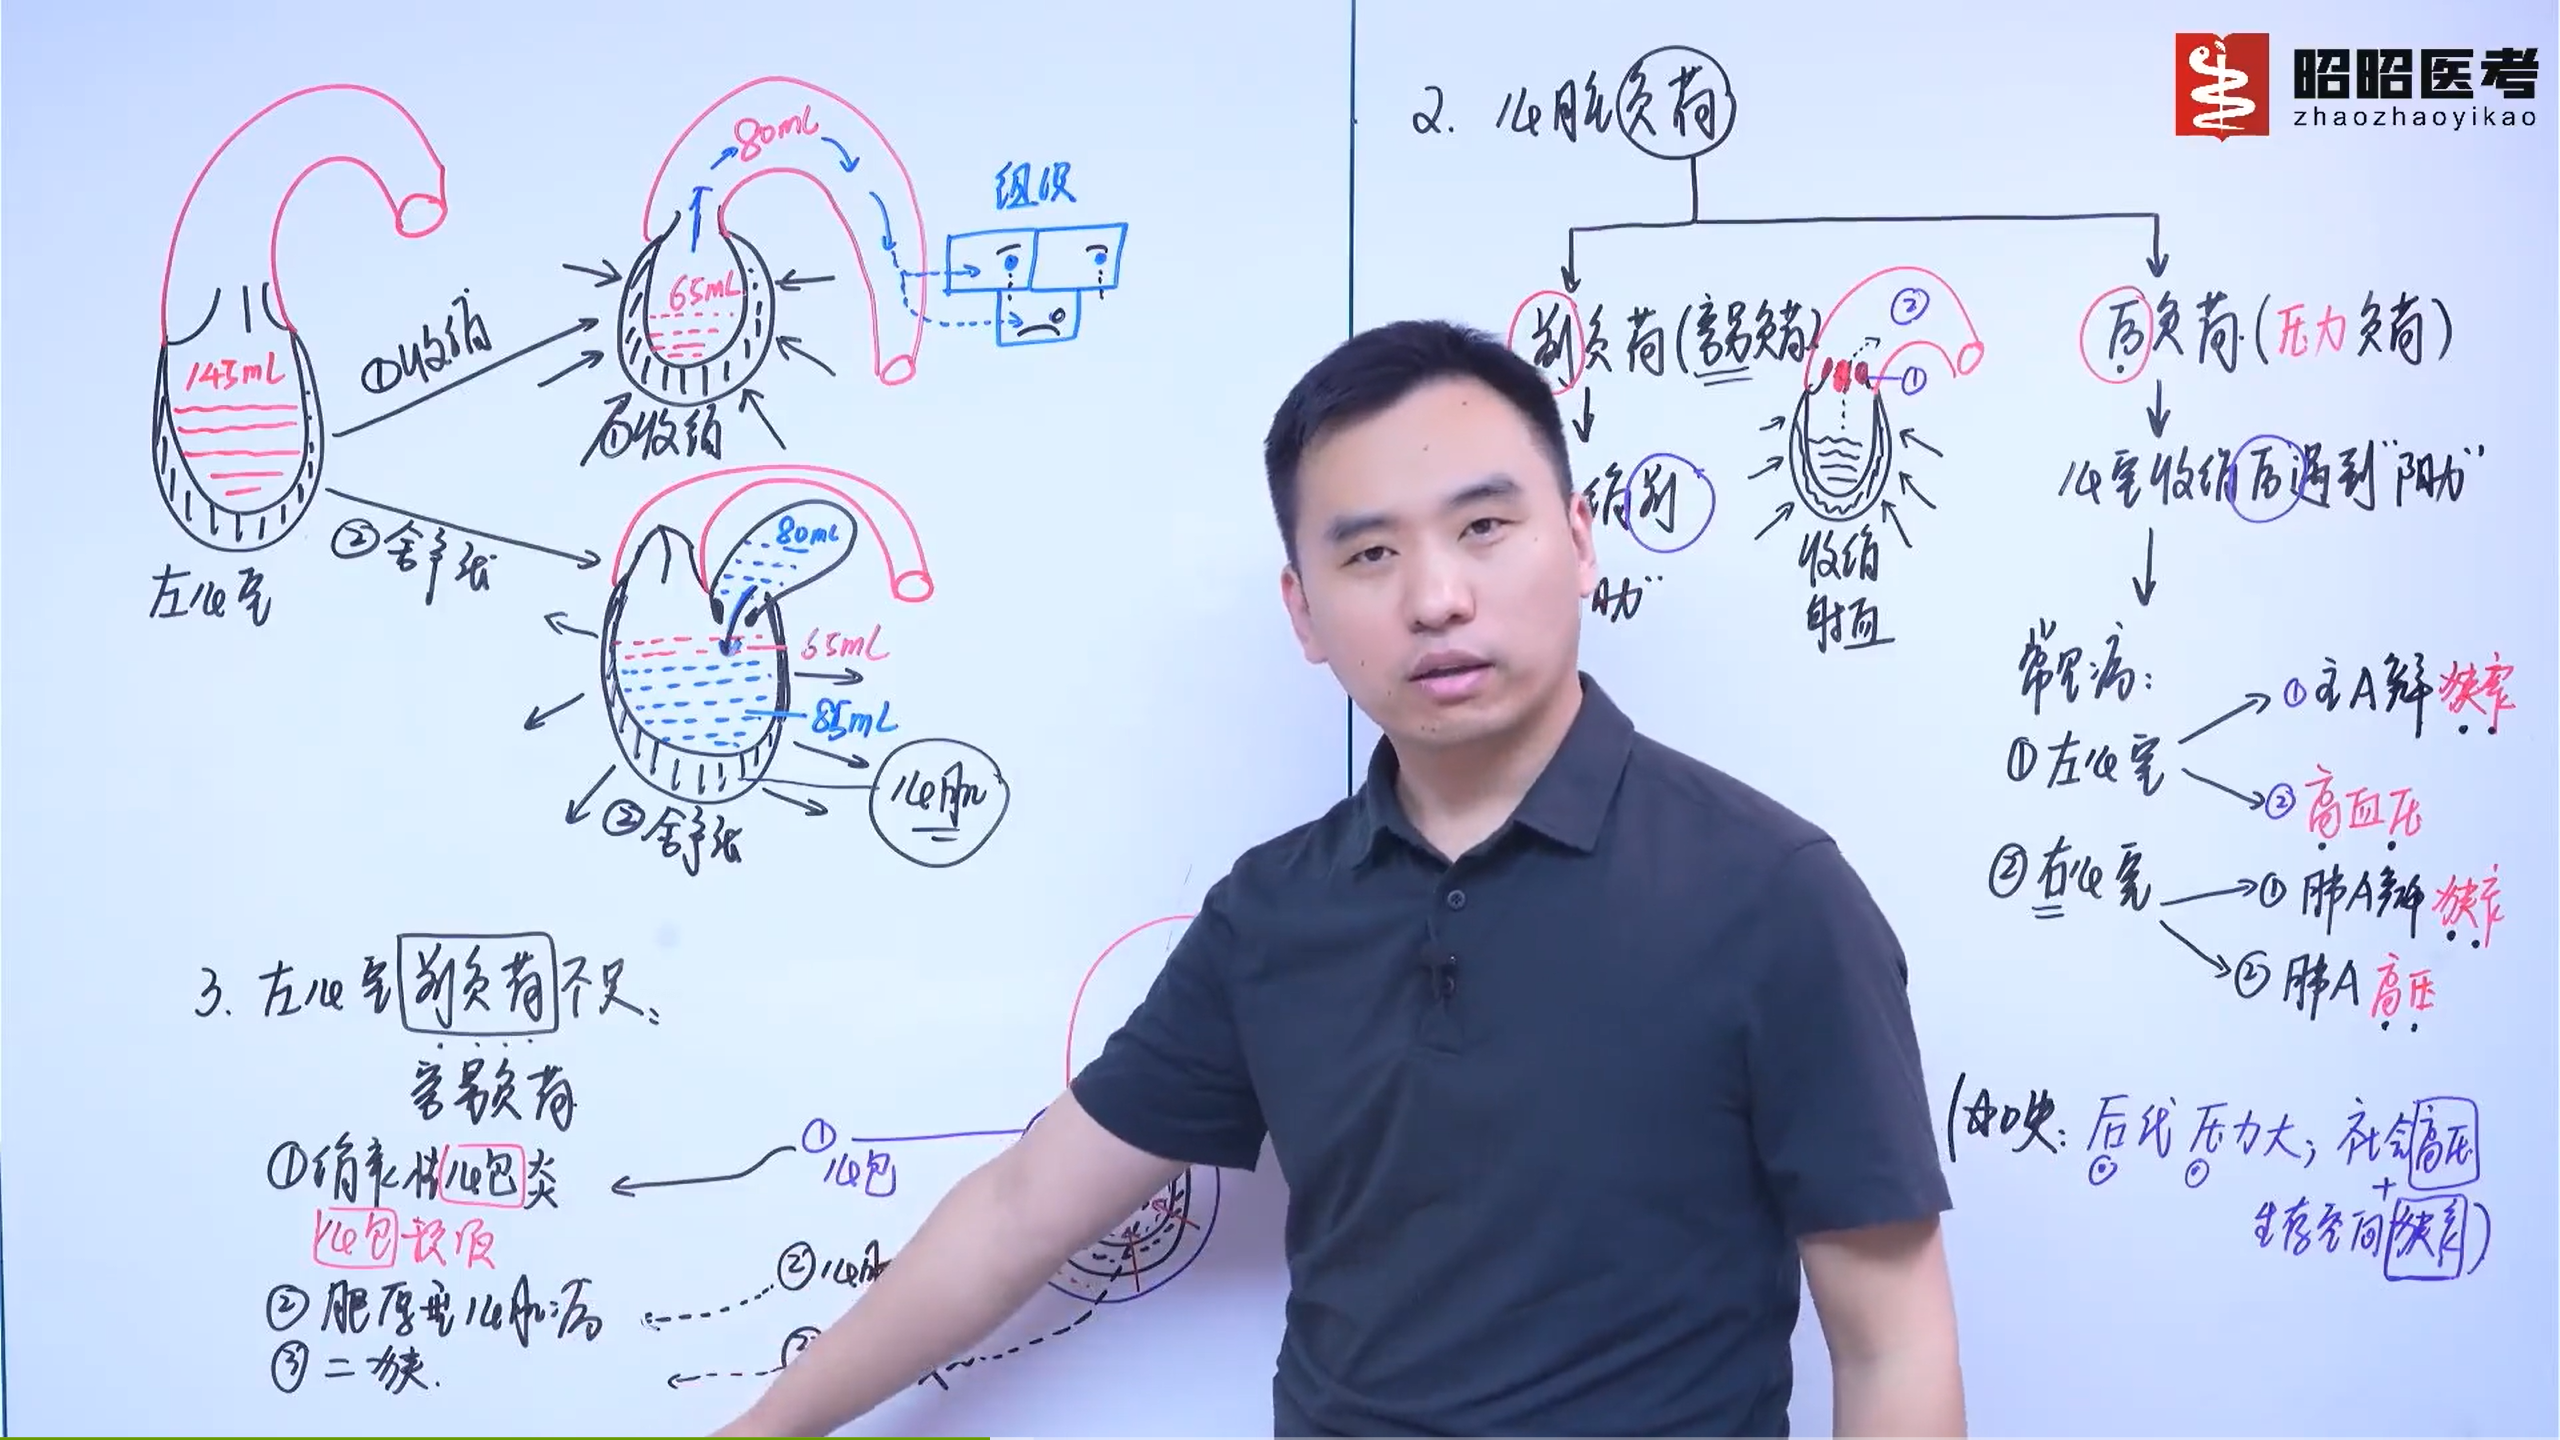 昭昭医考
zhaozhaoyikao
145mL
左心室
①收缩
②舒张
80mL
65mL
组织
①收缩
80mL
65mL
85mL
心肌
②舒张
2. 心脏负荷
前负荷(容量负荷)
缩前
②
①
收缩
射血
后负荷(压力负荷)
心室收缩后遇到"阻力"
常见病:
①左心室
①主A瓣狭窄
②高血压
②右心室
①肺A瓣狭窄
②肺A高压
(口诀: 后代压力大; 社会高压
+
生存空间狭窄)
3. 左心室前负荷不足:
容量负荷
①缩窄性心包炎
心包
②肥厚型心肌病
③二狭.
①
心包
②心